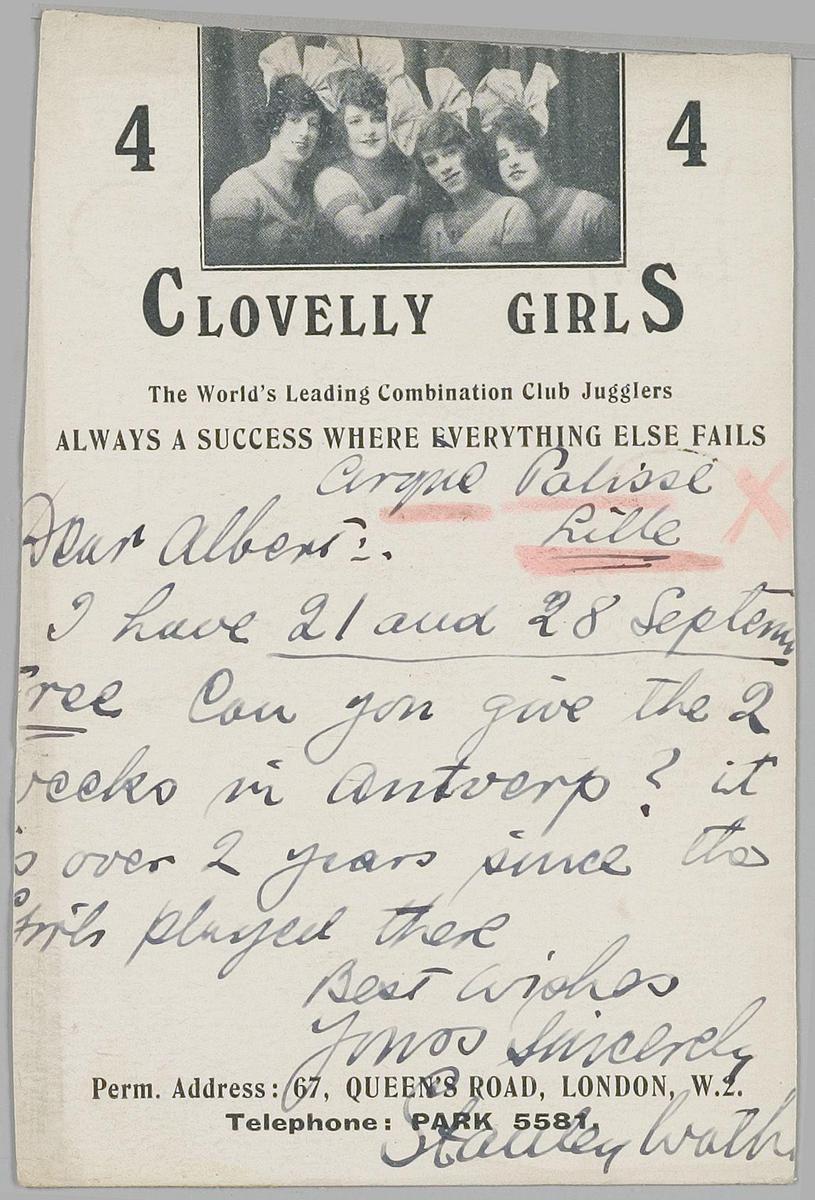 4 4
CLOVELLY GIRLS
The World's Leading Combination Club Jugglers
ALWAYS A SUCCESS WHERE EVERYTHING ELSE FAILS
Cirque Palisse
Lille
Dear Albert:.
I have 21 and 28 Septem
ree Can you give the 2
eeks in Antwerp? it
s over 2 years since the
Girls played there
Best Wishes
Yours Sincerely
Perm. Address: 67, QUEEN'S ROAD, LONDON, W.2.
Telephone: PARK 5581.
Stanley